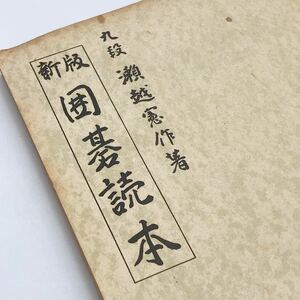 九段 瀬越憲作著
新版 囲碁読本